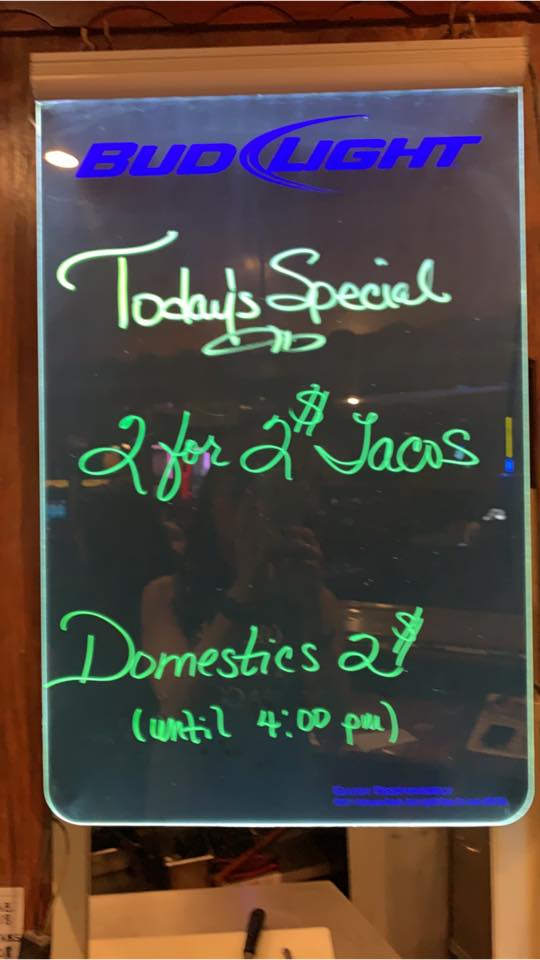 BUD LIGHT
Today's Special
2 for 2$ Tacos
Domestics 2$
(until 4:00 pm)